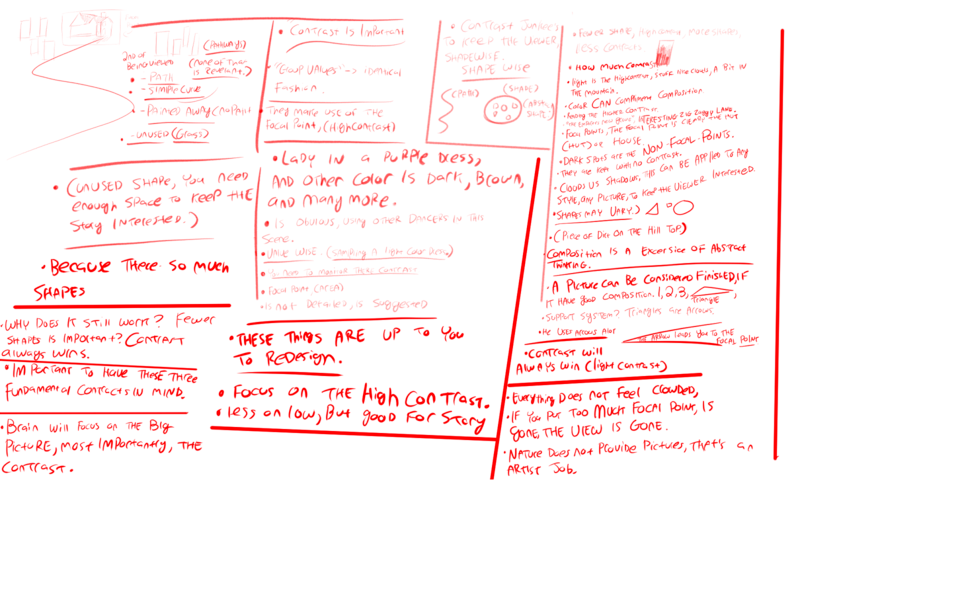 (Naturally)
(None of that is Relevant.)
- Path
- Simple Curve
- Pathed Away (No Path)
- Unused (Grass)
• (Unused Shape, You Need
enough Space to Keep the
Story Interested.)
• Because There so Much
Shapes
• Why Does It Still Work? Fewer
Shapes is Important? Contrast
always wins.
• Important to Have These Three
Fundamental Contracts in Mind.
• Brain will Focus on the Big
Picture, Most Importantly, The
Contrast.
• Contrast Is Important
• "Group Values" -> Identical
Fashion.
They make use of the
Focal Point, (High Contrast)
• Lady in a Purple Dress,
And Other Color Is Dark, Brown,
and Many More.
• Is Obvious, Using Other Dancers in This
Scene.
• Value Wise (Standing A Light Color Dress)
• Need To Maintain These Contrast
• Focal Point (Area)
• Is not Detailed, is Suggested
• These Things Are Up to You
To Redesign.
• Focus on the High Contrast.
• Less on Low, But Good For Story
• Contrast Junkies
To Keep The Viewer,
Shapewise.
Shape Wise
(Path)
(Shape)
Less Contrast.
• How Much Contrast
the Mountain.
• Color CAN Compliment Composition
(Hut) or House.
• Dark Spots are the Non-Focal-Points.
• They are Kept without Contrast.
• Clouds Us Shadows, This Can Be Applied to Any
Style, any Picture, to Keep the Viewer Interested.
• Shapes May Vary.)
• (Piece of Dirt On the Hill Top)
Composition Is a Excersise Of Abstract
Thinking.
• A Picture Can Be Considered Finished, If
It Have Good Composition. 1, 2, 3,
Triangle
• Support System? Triangles are Arrows.
• He Uses Arrows Alot
The Arrow Leads You To The
Focal Point
• Contrast Will
Always Win (Light Contrast)
• Everything Does not Feel Clowded,
• If You Put Too Much Focal Point, Is
Gone, The View is Gone.
• Nature Does Not Provide Pictures, That's an
Artist Job.